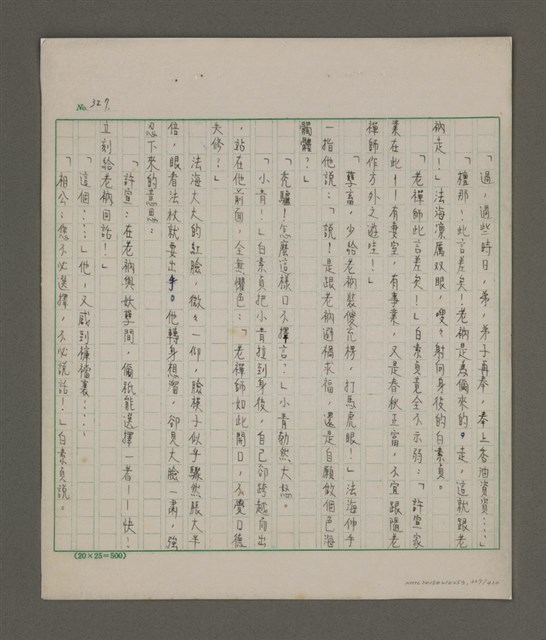 No. 327.
「過，過些時日，弟，弟子再奉，奉上香油資資……」
「檀那！此言差矣！老衲是為儞來的。走，這就跟老
衲走！」法海凜厲双眼，嗖々射向身後的白素貞。
「老禪師此言差矣！」白素貞竟全不示弱：「許宣家
業在此——有妻室，有事業，又是春秋正富，不宜跟隨老
禪師作方外之遊呢！」
「孽畜，少給老衲裝傻充楞，打馬虎眼！」法海伸手
一指他說：「說！是跟老衲避禍求福，還是自願做個色海
髑髏？」
「禿驢！怎麼這樣口不擇言？」小青勃然大怒。
「小青！」白素貞把小青拉到身後，自己卻跨越向出
，站在他前面，全無懼色：「老禪師如此開口，不覺口德
失修？」
法海大大的紅臉，微々一仰，臉模子似乎驟然張大半
倍，眼看法杖就要出手。他轉身想溜，卻見大臉一肅，強
忍下來的意思：
「許宣：在老衲與妖孽間，儞祇能選擇一者——快！
立刻給老衲回話！」
「這個……」他，又感到褲襠裏……
「相公：您不必選擇，不必說話！」白素貞說。
(20×25=500)